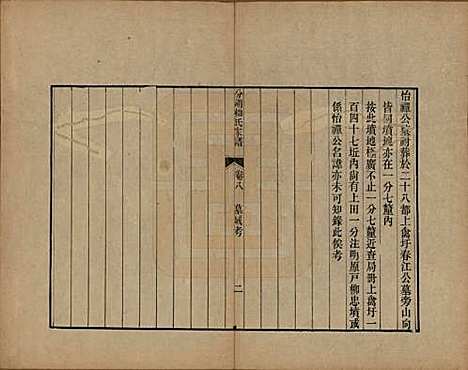 怡禪公墓祔葬於二十八都上禽圩春江公墓旁山向
皆同墳地亦在一分七釐內
按此墳地極廣不止一分七釐近查局冊上禽圩一
百四十七坵內尚有上田一分注明原戶柳忠墳或
係怡禪公名諱亦未可知錄此俟考
分湖柳氏家譜 卷八 墓域考 二